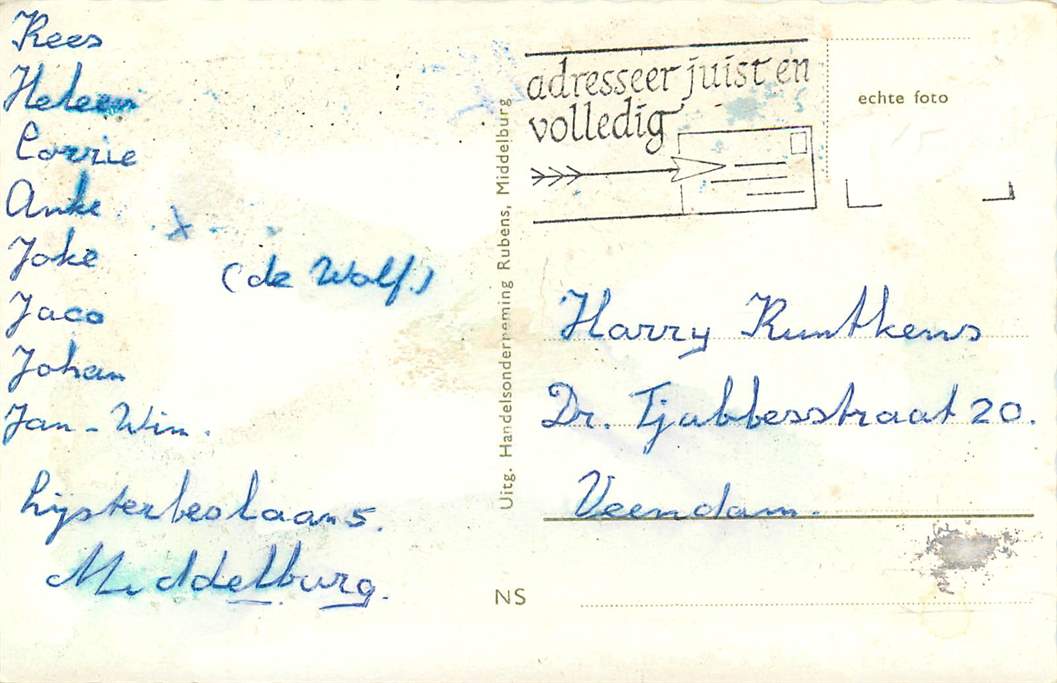 Kees
Heleen
Corrie
Anke
Joke
(de Wolf.)
Jaco
Johan
Jan-Wim.
Lijsterbeslaan 5.
Middelburg.
Uitg. Handelsonderneming Rubens, Middelburg
NS
adresseer juist en
volledig
echte foto
Harry Runtkens
Dr. Tjabbesstraat 20.
Veendam.